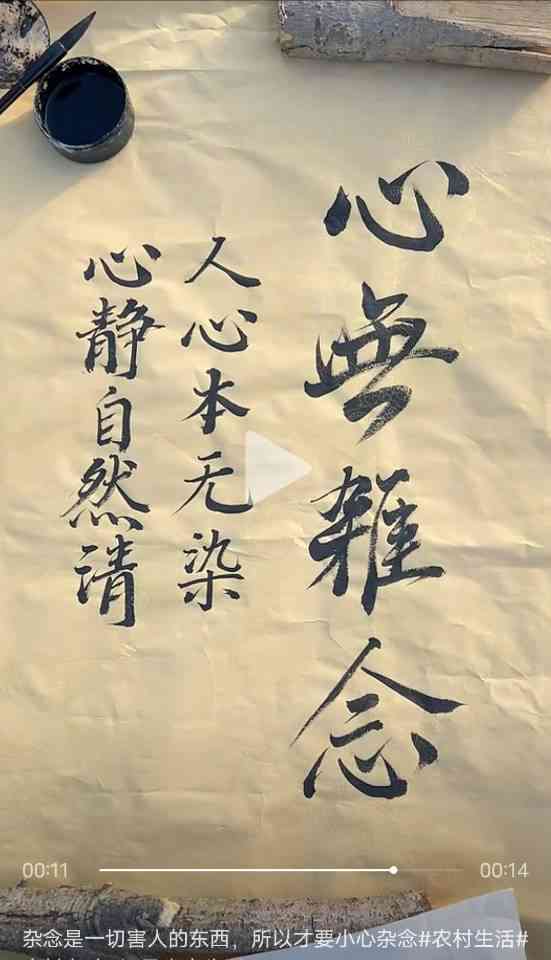 心無雜念
人心本无染
心静自然清
00:11
00:14
杂念是一切害人的东西，所以才要小心杂念#农村生活#